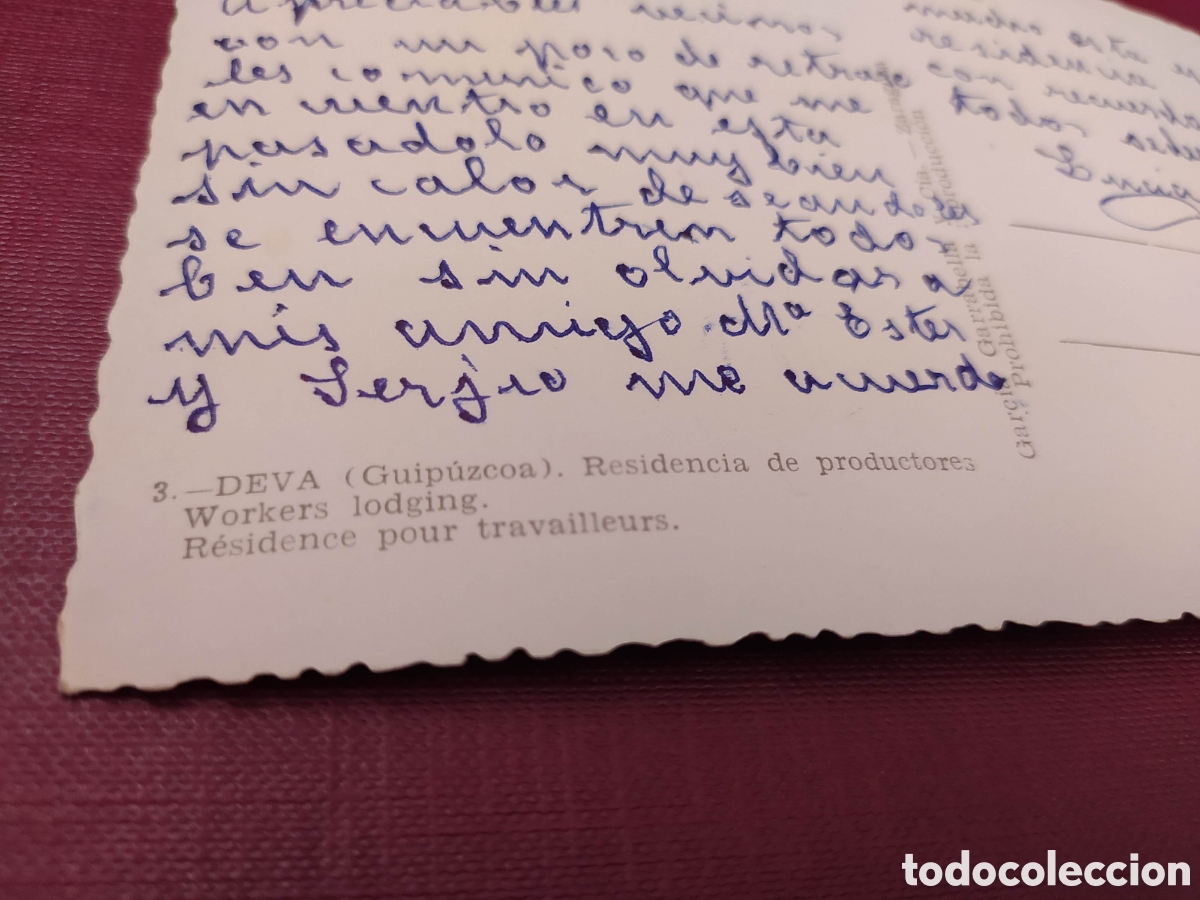 Apreciables vecinos
con un poco de retraso
les comunico que me
encuentro en esta
pasadolo muy bien
sin calor deseandoles
se encuentren todos
ben sin olvidar a
mis amigo Mª Ester
y Serjio me acuerdo
residencia
con recuerdos
todos
3.—DEVA (Guipúzcoa). Residencia de productores
Workers lodging.
Résidence pour travailleurs.
García Garrabella y Cía. Zaragoza
Prohibida la reproducción
todocoleccion